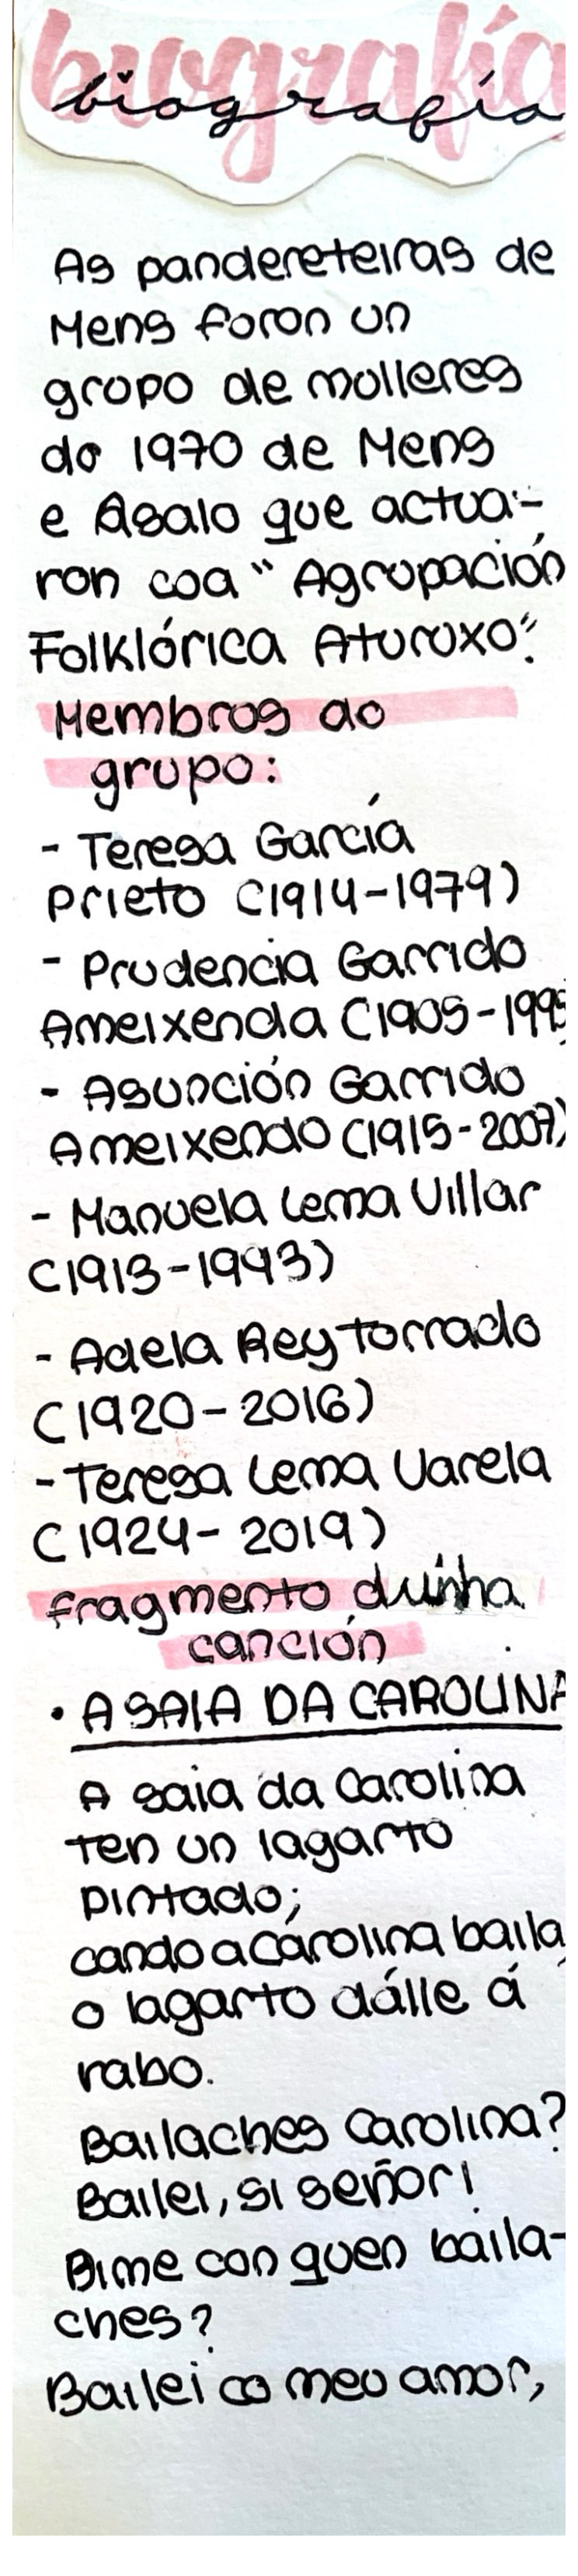 biografía
biografía
As pandereteiras de
Mens foron un
gropo de molleres
do 1970 de Mens
e Asalo que actua-
ron coa "Agrupación
Folklórica Aturuxo".
Membros do
grupo:
- Teresa García
Prieto (1914-1979)
- Prudencia Garrido
Ameixenda (1905-1995
- Asunción Garrido
Ameixendo (1915-2007)
- Manuela Lema Villar
(1913-1993)
- Adela Rey Torrado
(1920-2016)
- Teresa Lema Varela
(1924-2019)
fragmento dunha
canción
• A SAIA DA CAROLINA
A saia da Carolina
ten un lagarto
pintado;
cando a Carolina baila,
o lagarto dálle á
rabo.
Bailaches Carolina?
Bailei, si señor!
Dime con quen baila-
ches?
Bailei co meu amor,